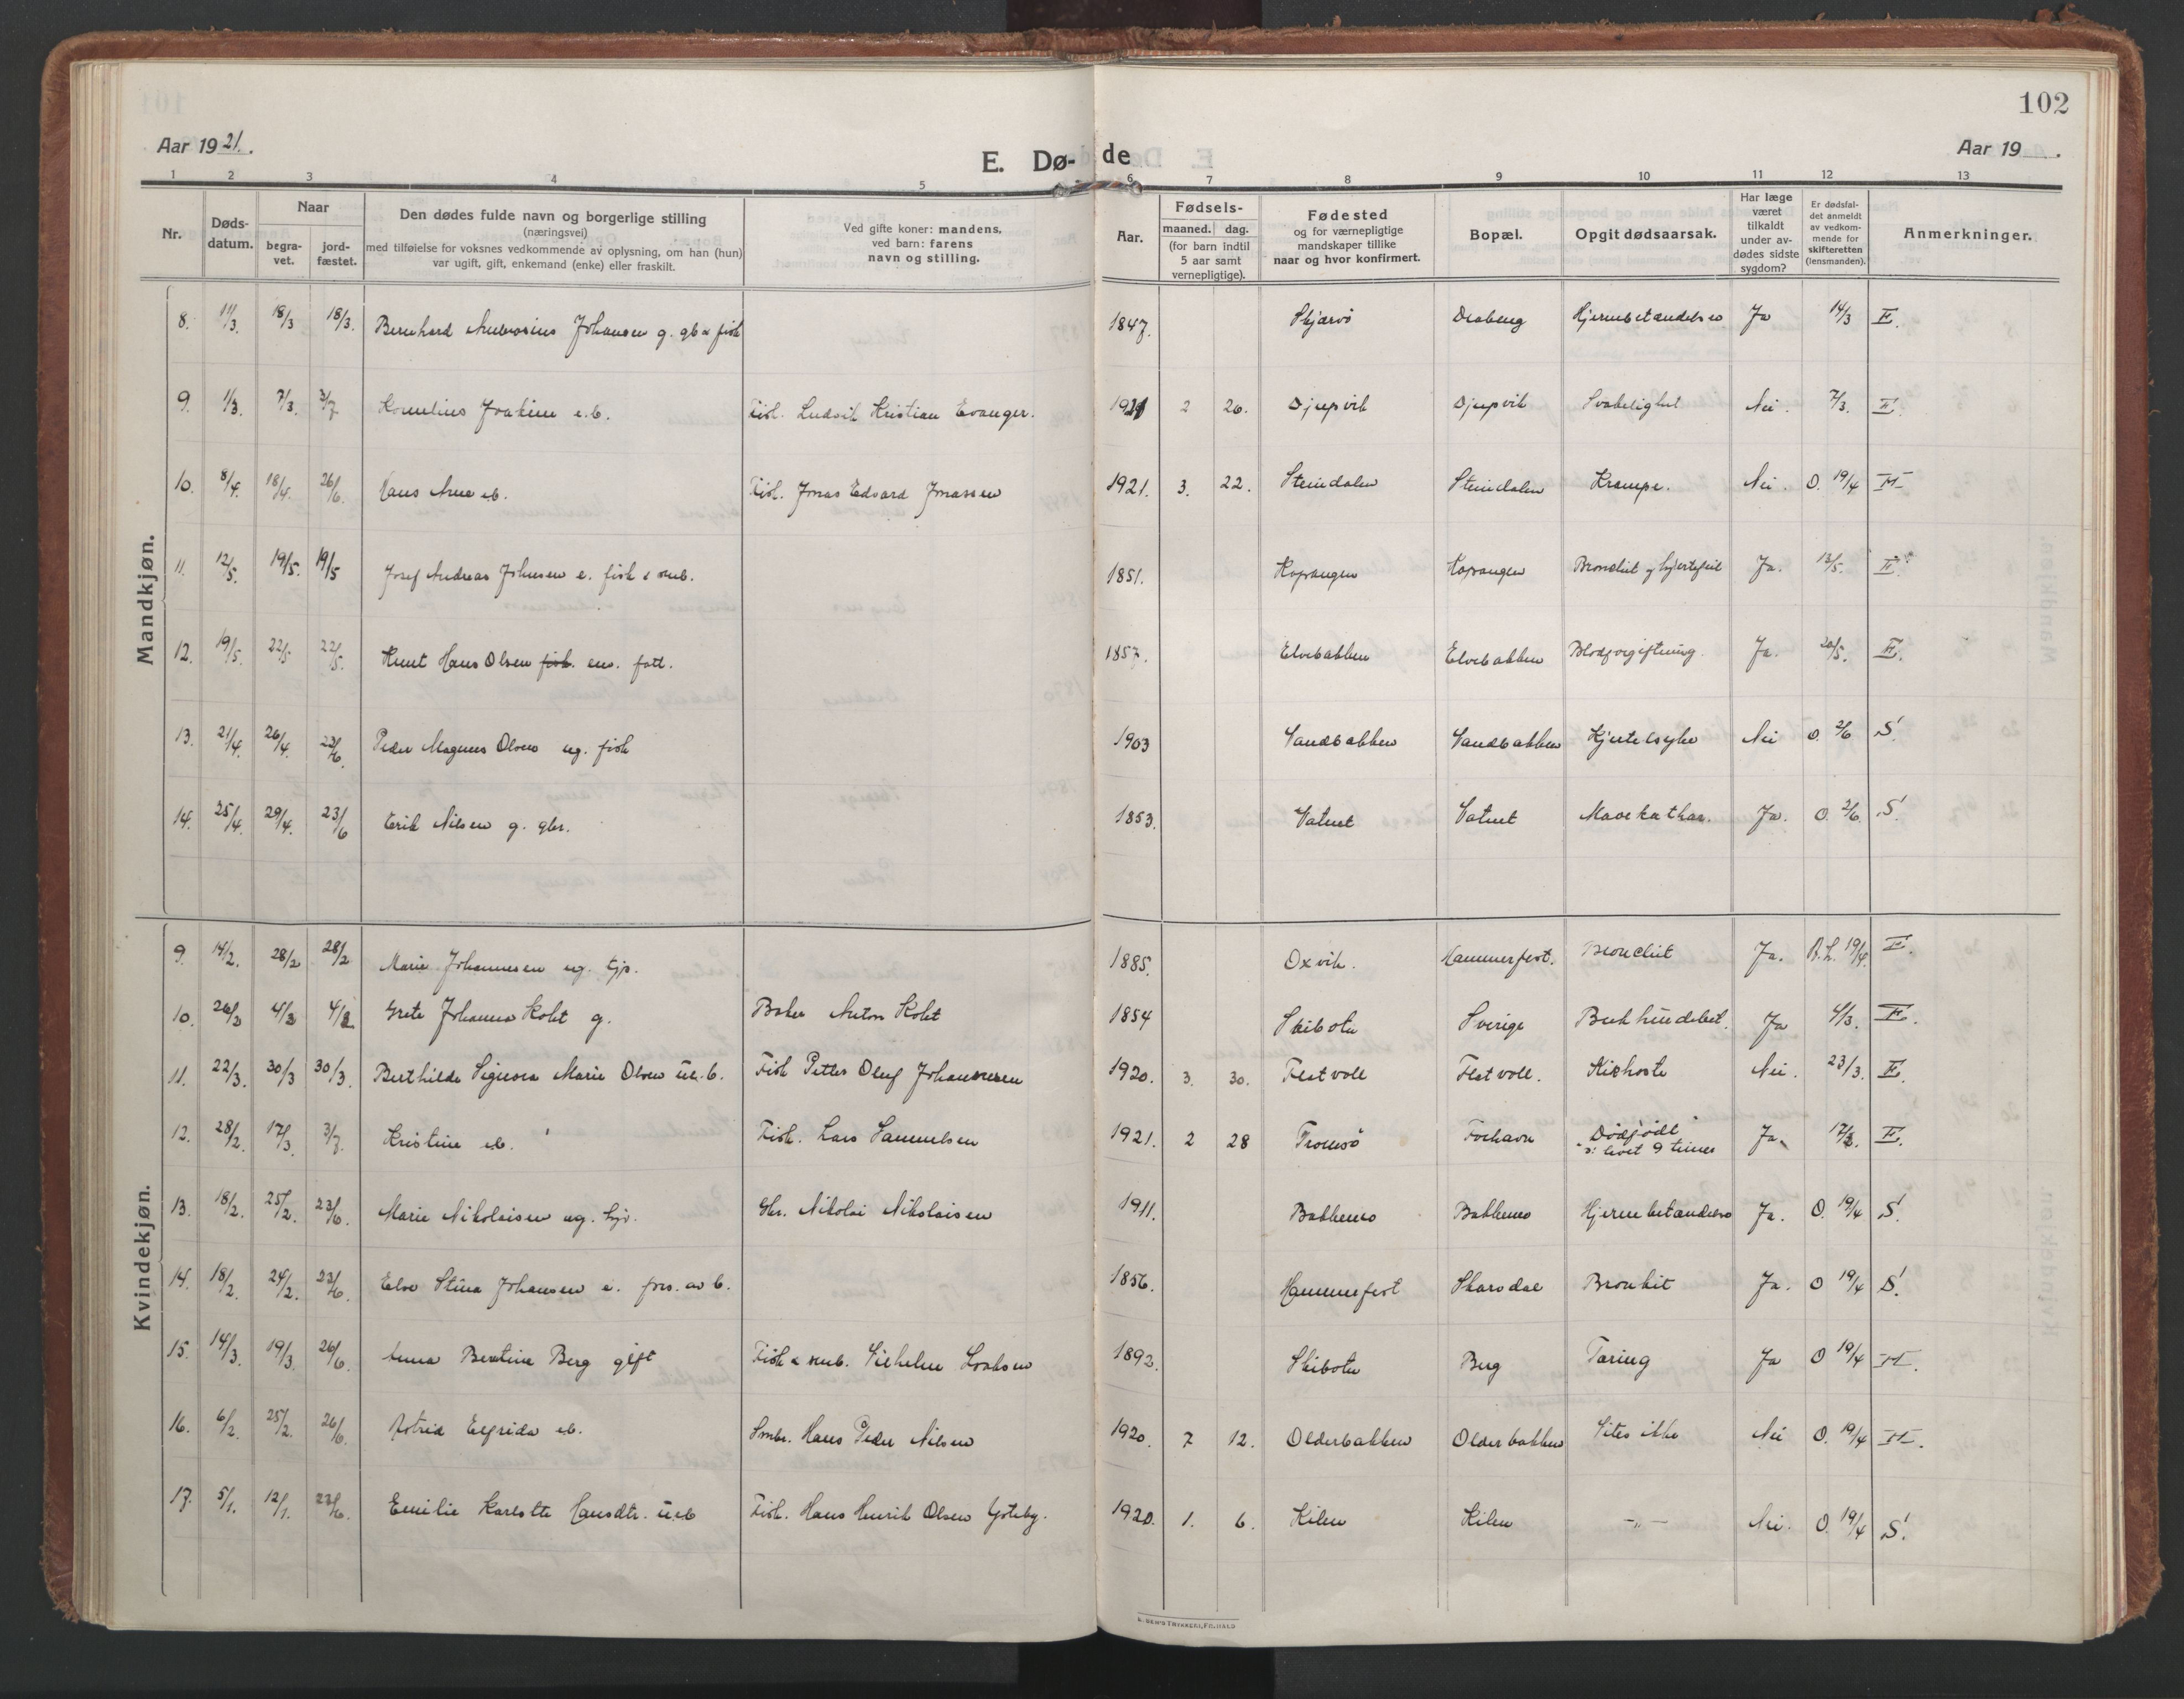 102
Aar 1921.
E. Dø- de
Aar 19 .
1 2 3 4 5 6 7 8 9 10 11 12 13
Nr.
Døds-
datum.
Naar
begra-
vet.
jord-
fæstet.
Den dødes fulde navn og borgerlige stilling
(næringsvei)
med tilføielse for voksnes vedkommende av oplysning, om han (hun)
var ugift, gift, enkemand (enke) eller fraskilt.
Ved gifte koner: mandens,
ved barn: farens
navn og stilling.
Aar.
Fødsels-
maaned. dag.
(for barn indtil
5 aar samt
vernepligtige).
Fødested
og for værnepligtige
mandskaper tillike
naar og hvor konfirmert.
Bopæl.
Opgit dødsaarsak.
Har læge
været
tilkaldt
under av-
dødes sidste
sygdom?
Er dødsfal-
det anmeldt
av vedkom-
mende for
skifteretten
(lensmanden).
Anmerkninger.
Mandkjøn.
8. 11/3 18/3 18/3. Bernhard Ambrosius Johansen g. gb & fisk 1847. Skjærvø Draberg Hjernebetændelse Ja 14/3 F.
9. 1/3. 7/3. 3/7 Kornelius Joakim e.b. Fisk. Ludvik Kristian Evanger. 1921 2 26. Djupvik Djupvik Svakelighet Nei. 7/3. F.
10. 8/4. 18/4. 26/6. Hans Arne eb. Fisk. Jonas Edvard Jonassen 1921. 3. 22. Steindalen Steindalen Krampe. Nei. O. 19/4 H
11. 12/5. 19/5. 19/5 Josef Andreas Johnsen e. fisk & smb. 1851. Kopangen Kopangen Bronchit & hjertefeil Ja. 13/5. F.
12. 19/5. 22/5 22/5. Knut Hans Olsen fisk. em. fatt. 1857. Elvebakken Elvebakken Blodforgiftning. Ja. 20/5. F.
13. 21/4. 26/4. 23/6. Peder Magnus Olsen ug. fisk 1903 Sandbakken Sandbakken Hjertesyke Nei O. 2/6 S.
14. 25/4. 29/4. 23/6 Erik Nilsen g. gbr. 1853. Vatnet Vatnet Mavekathar. Ja. O. 2/6. S.
Kvindekjøn.
9. 14/2. 28/2 28/2 Marie Johannesen ug. tjp. 1885. Oxvik. Hammerfest. Bronchit Ja. R.L. 19/4. F.
10. 26/2 4/3 4/3 Grete Johanna Kolst g. Baker Anton Kolst 1854 Skibotn Sverige Bukhindebet. Ja 4/3. F.
11. 22/3. 30/3 30/3. Berthilde Signora Marie Olsen u.e.b. Fisk Petter Oluf Johannesen 1920. 3. 30. Flatvoll Flatvoll. Kikhoste Nei. 23/3. F.
12. 28/2. 17/3. 3/7. Kristine eb. Fisk. Lars Samuelsen 1921. 2 28 Tromsö Forhavn "Dødfødt" Ja. 17/3. F.
ɔ: levet 9 timer
13. 18/2. 25/2. 23/6. Marie Nikolaisen ug. tjp. Gbr. Nikolai Nikolaisen 1911. Bakkemo Bakkemo Hjernebetændelse Ja. O. 19/4 S.
14. 18/2. 24/2. 23/6. Elve Stina Johansen e. fors. av b. 1856. Hammerfest Skarsdal Bronkit Ja. O 19/4 S.
15. 14/3. 19/3. 26/6. Anna Bentine Berg gift Fisk & smb. Vilhelm Isaksen 1892. Skibotn Berg Tæring Ja O 19/4 H.
16. 6/2. 25/2. 26/6. Astrid Elfrida eb. Smbr. Hans Peder Nilsen 1920. 7 12. Olderbakken Olderbakken Vites ikke Nei O. 19/4 H.
17. 5/1. 12/1. 23/6. Emilie Karlotte Hansdtr. u.e.b Fisk. Hans Henrik Olsen 1920. 1. 6. Kilen Kilen -"- Nei. O. 19/4 S.